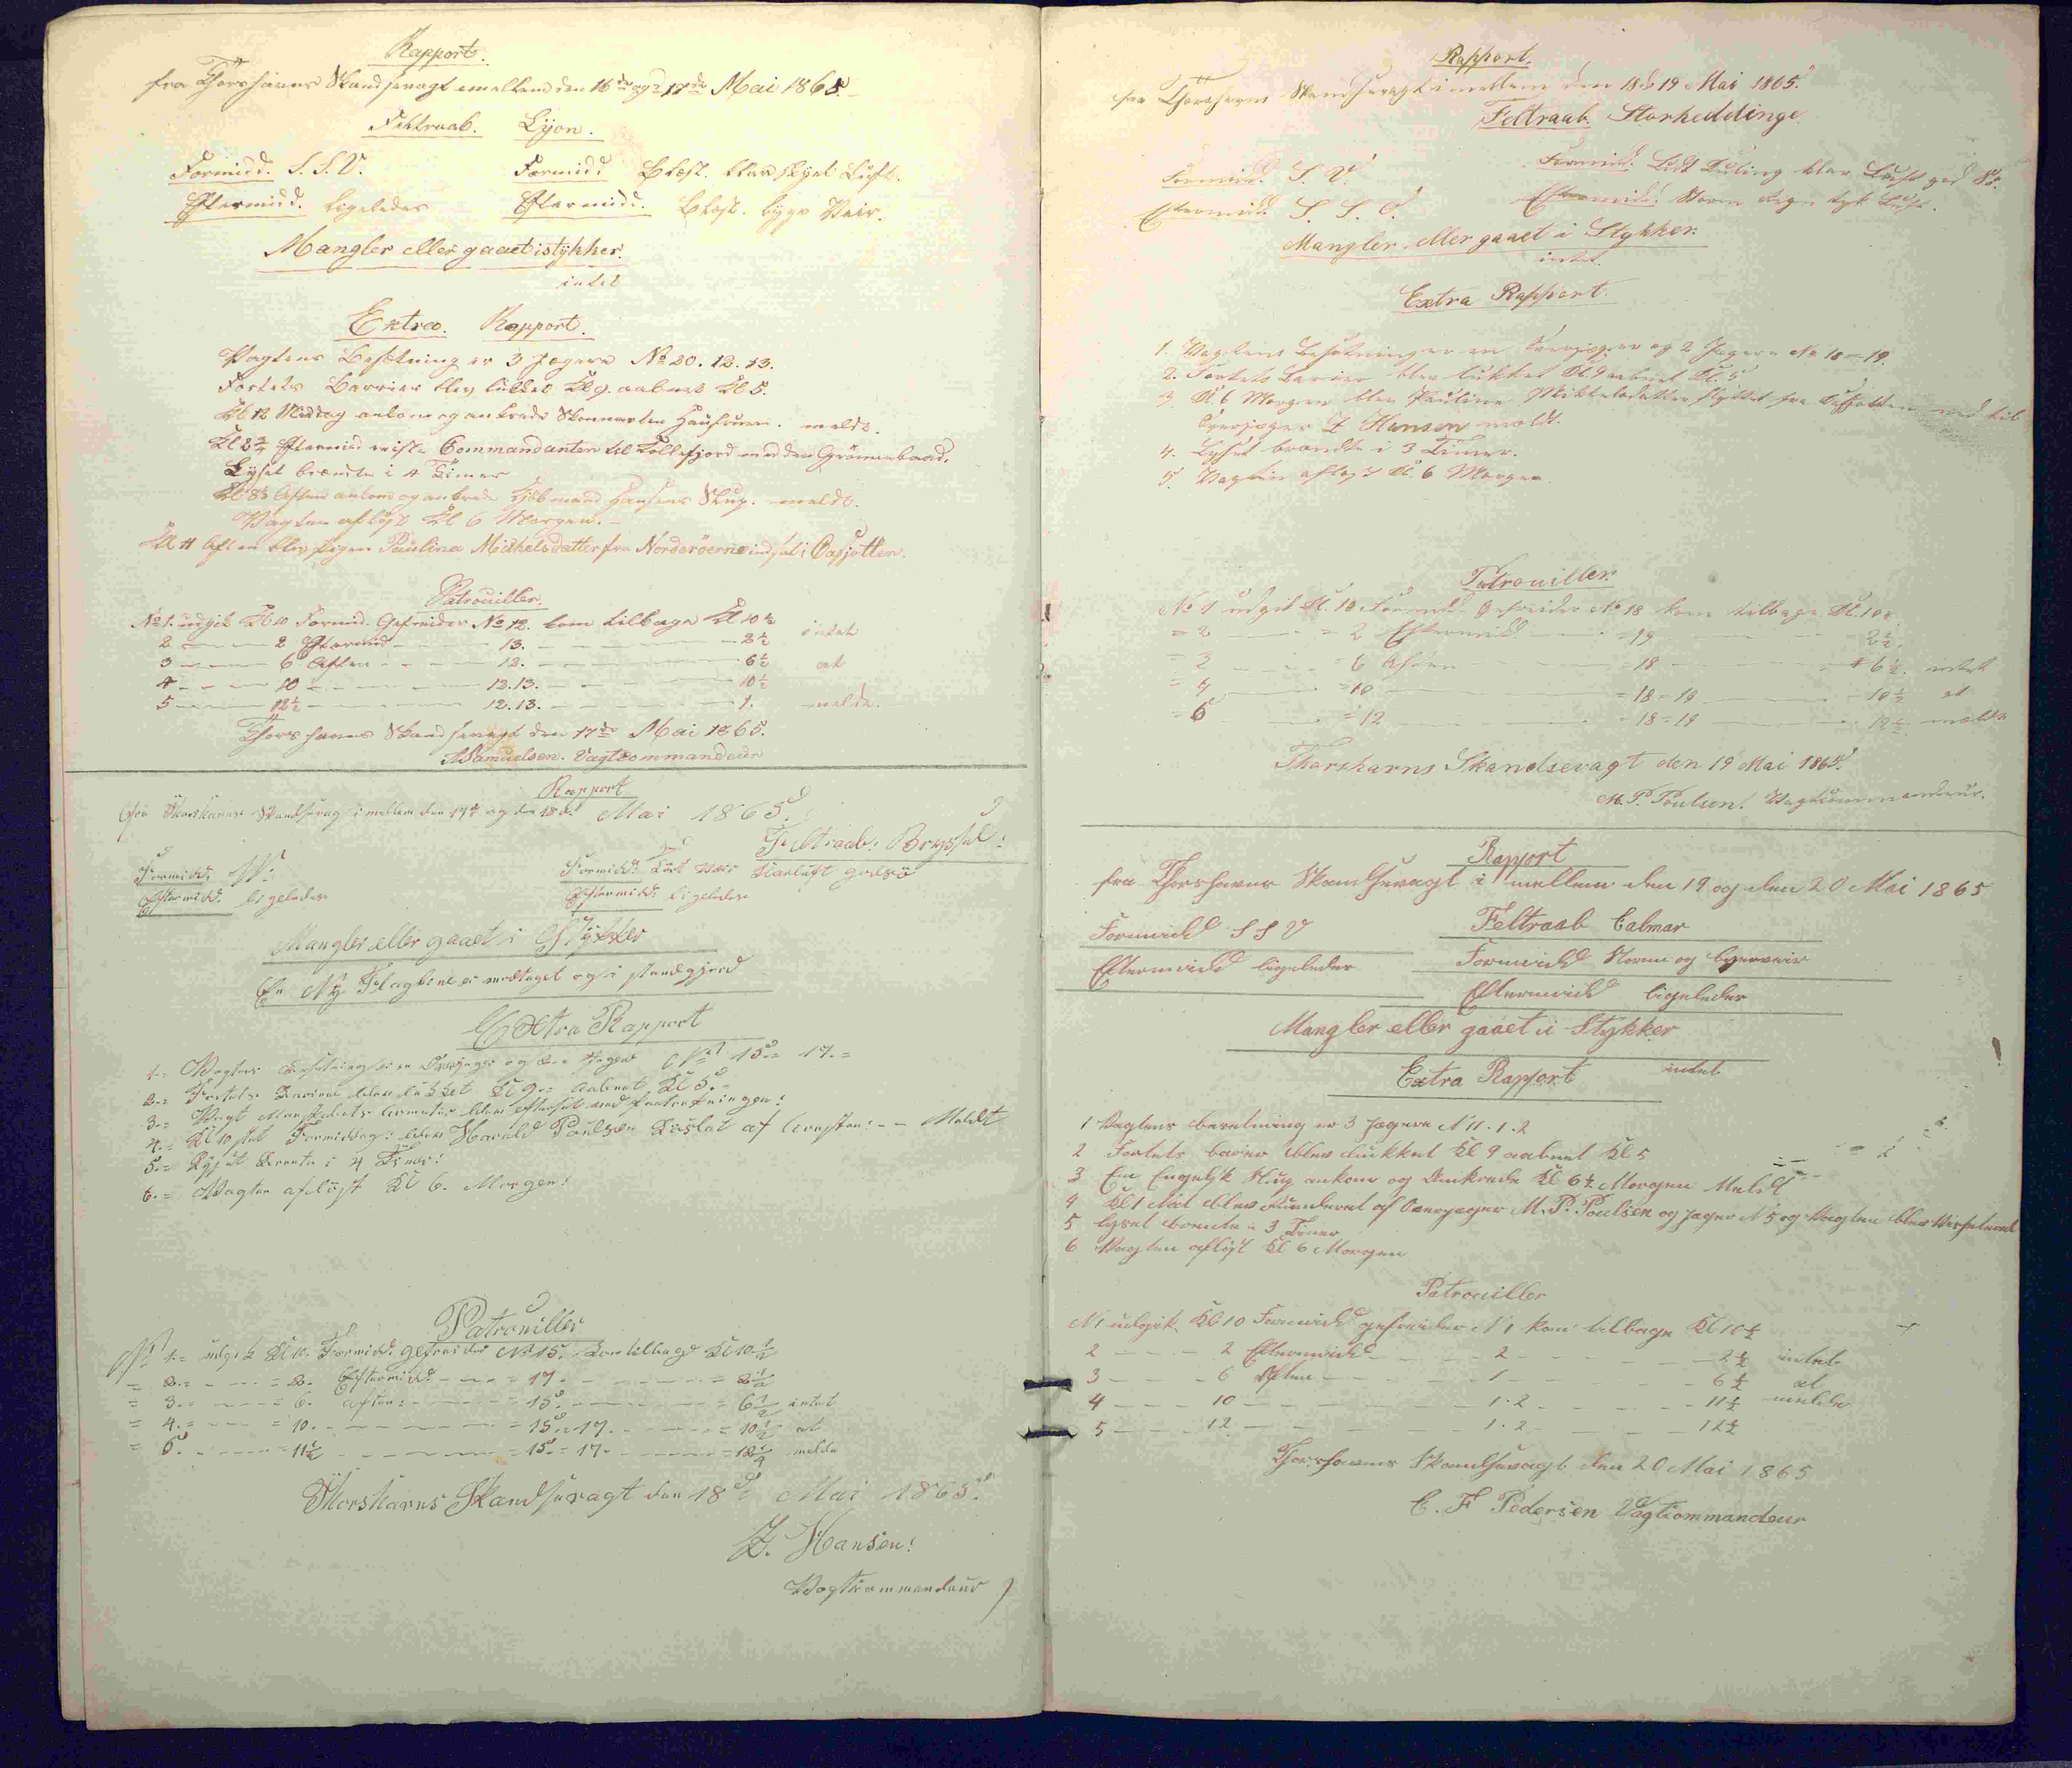 Rapport.
fra Thorshavns Skandsevagt emellem den 16de og 17de Mai 1865.
Feltraab. Lyon.
Formidd. S.S.V. Formidd Blæst. klar skyet Luft.
Eftermidd. ligeledes Eftermidd. Blæst. byge Veir.
Mangler eller gaaet istykker.
intet
Extra. Rapport.
Vagtens Besætning er 3 Jægere No 20. 12. 13.
Fortets Barrier blev lukket Kl 9. aabnet Kl 5.
Kl 12 Middag ankom og ankrede Skonnerten meldt.
Eftermid reiste Commandanten til Kollefjord med den Grønnebaad.
Lyset brændte i 4 Timer
Aften ankom og ankrede Kjöbmand Hansens Slup. meldt.
Vagten aflöst Kl 6 Morgen.
Kl 11 Aften blev pigen Paulina Mikkelsdatter fra Norderöerne indsat i
Patrouiller.
No 1. udgik Kl 10 Formid. Gefreider No 12. kom tilbage Kl 10½ intet
2 — — 2 Eftermid — — 13. — — 2½
3 — — 6 Aften — — 12. — — 6½ at
4 — — 10 — — 12.13. — — 10½
5 — — 12½ — — 12.13. — — 1. melde.
Thorshavns Skandsevagt den 17de Mai 1865.
Samuelsen. Vagtcommandeur
Rapport
fra Thorshavns Skandsevagt i mellem den 17de og den 18de Mai 1865.
Feltraab: Bryssel:
Formidd: W: Formidd: Klarluft
Eftermidd: ligeledes Eftermidd: ligeledes
Mangler eller gaaet i Stykker
En Ny Flagline er modtaget og i standgjord
Extra Rapport
1.= Vagtens Besætning er en Overjæger og to Jæger No 15.= 17.=
2.= Fortets Bariere blev lukket Kl 9.= aabnet Kl 5.=
3.= Vagt Mandskabets Armatur blev efterset ved
4.= Kl 10 slet Formiddag: blev Harald Poulsen Löslat af Arresten: - - Meldt
5.= Lyset Brente i 4 Timer:
6.= Vagten aflöst Kl 6. Morgen:
Patrouiller
No 1.= udgik Kl 10. Formidd: gefreider No 15. kom tilbage Kl 10½
= 2.= — = 2. Eftermidd: — = 17. — = 2½
= 3.= — = 6. aften: — = 15. — = 6½ intet
= 4.= — = 10. — = 15.= 17. — = 10½ at
= 5. — = 11½ — = 15.= 17. — = 12¼ melde
Thorshavns Skandsevagt den 18de Mai 1865.
Z. Hansen:
Vagtkommandeur
Rapport.
fra Thorshavns Skandsevagt i mellem den 18 & 19 Mai 1865.
Feltraab. Storheddinge.
Formidd. S. V. Formidd. Lidt Kuling klar Luft god Sö.
Eftermidd. S. S. O. Eftermidd. Storm Regn tyk Luft.
Mangler eller gaaet i Stykker.
intet.
Extra Rapport.
1. Vagtens Besætning er en Overjæger og 2 Jægere No 18 = 19.
2. Fortets Barier blev lukket Kl. 9 aabnet Kl. 5
3. Kl. 6 Morgen blev Pauline Mikkelsdatter flyttet fra ned til
Overjæger Z Hansen meldt.
4. Lyset brændte i 3 Timer.
5. Vagten aflöst Kl. 6 Morgen.
Patrouiller.
No 1 udgik Kl. 10 Formidd. Gefreider No 18 kom tilbage Kl. 10½.
= 2 — = 2 Eftermidd — = 19 — 2½.
= 3 — = 6 Aften — = 18 — 6½. intet
= 4 — = 10 — = 18 = 19 — 10½ at
= 5 — = 12 — = 18 = 19 — 12½ melde
Thorshavns Skandsevagt den 19 Mai 1865.
M. P. Poulsen. Vagtcommandeur.
Rapport
fra Thorshavns Skandsevagt i mellem den 19 og den 20 Mai 1865
Formidd S S V Feltraab Calmar
Eftermidd ligeledes Formidd Storm og bygeveir
Eftermidd ligeledes
Mangler eller gaaet i Stykker
intet
Extra Rapport
1 Vagtens besetning er 3 Jægere N 11. 1. 2
2 Fortets barier blev lukket Kl 9 aabnet Kl 5
3 En Engelsk Slup ankom og Ankrede Kl 6½ Morgen Meldt
4 Kl 1 Nat blev Runderet af Overjæger M. P. Poulsen og Jæger N 5 og Vagten blev Visiteret
5 Lyset brente i 3 Timer
6 Vagten aflöst Kl 6 Morgen
Patrouiller
N 1 udgik Kl 10 Formidd gefreider N 1 kom tilbage Kl 10½
2 — — 2 Eftermidd — — 2 — — 2½ intet
3 — — 6 Aften — — 1 — — 6½ at
4 — — 10 — — 1. 2 — — 11½ melde
5 — — 12 — — 1. 2 — — 12½
Thorshavns Skandsevagt den 20 Mai 1865
C. F Pedersen Vagtcommandeur